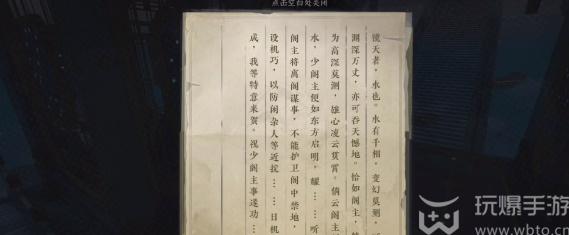 点击空白处关闭
镜天者，水也。水有千相，变幻莫测，
渊深万丈，亦可吞天憾地。恰如阁主，
为高深莫测，雄心凌云贯霄。倘云阁主
水，少阁主便如东方启明，耀……听
阁主将离阁谋事，不能护卫阁中禁地，
设机巧，以防闲杂人等近扰……日机
成，我等特意来贺。祝少阁主事遂功……
玩爆手游
www.wbto.cn